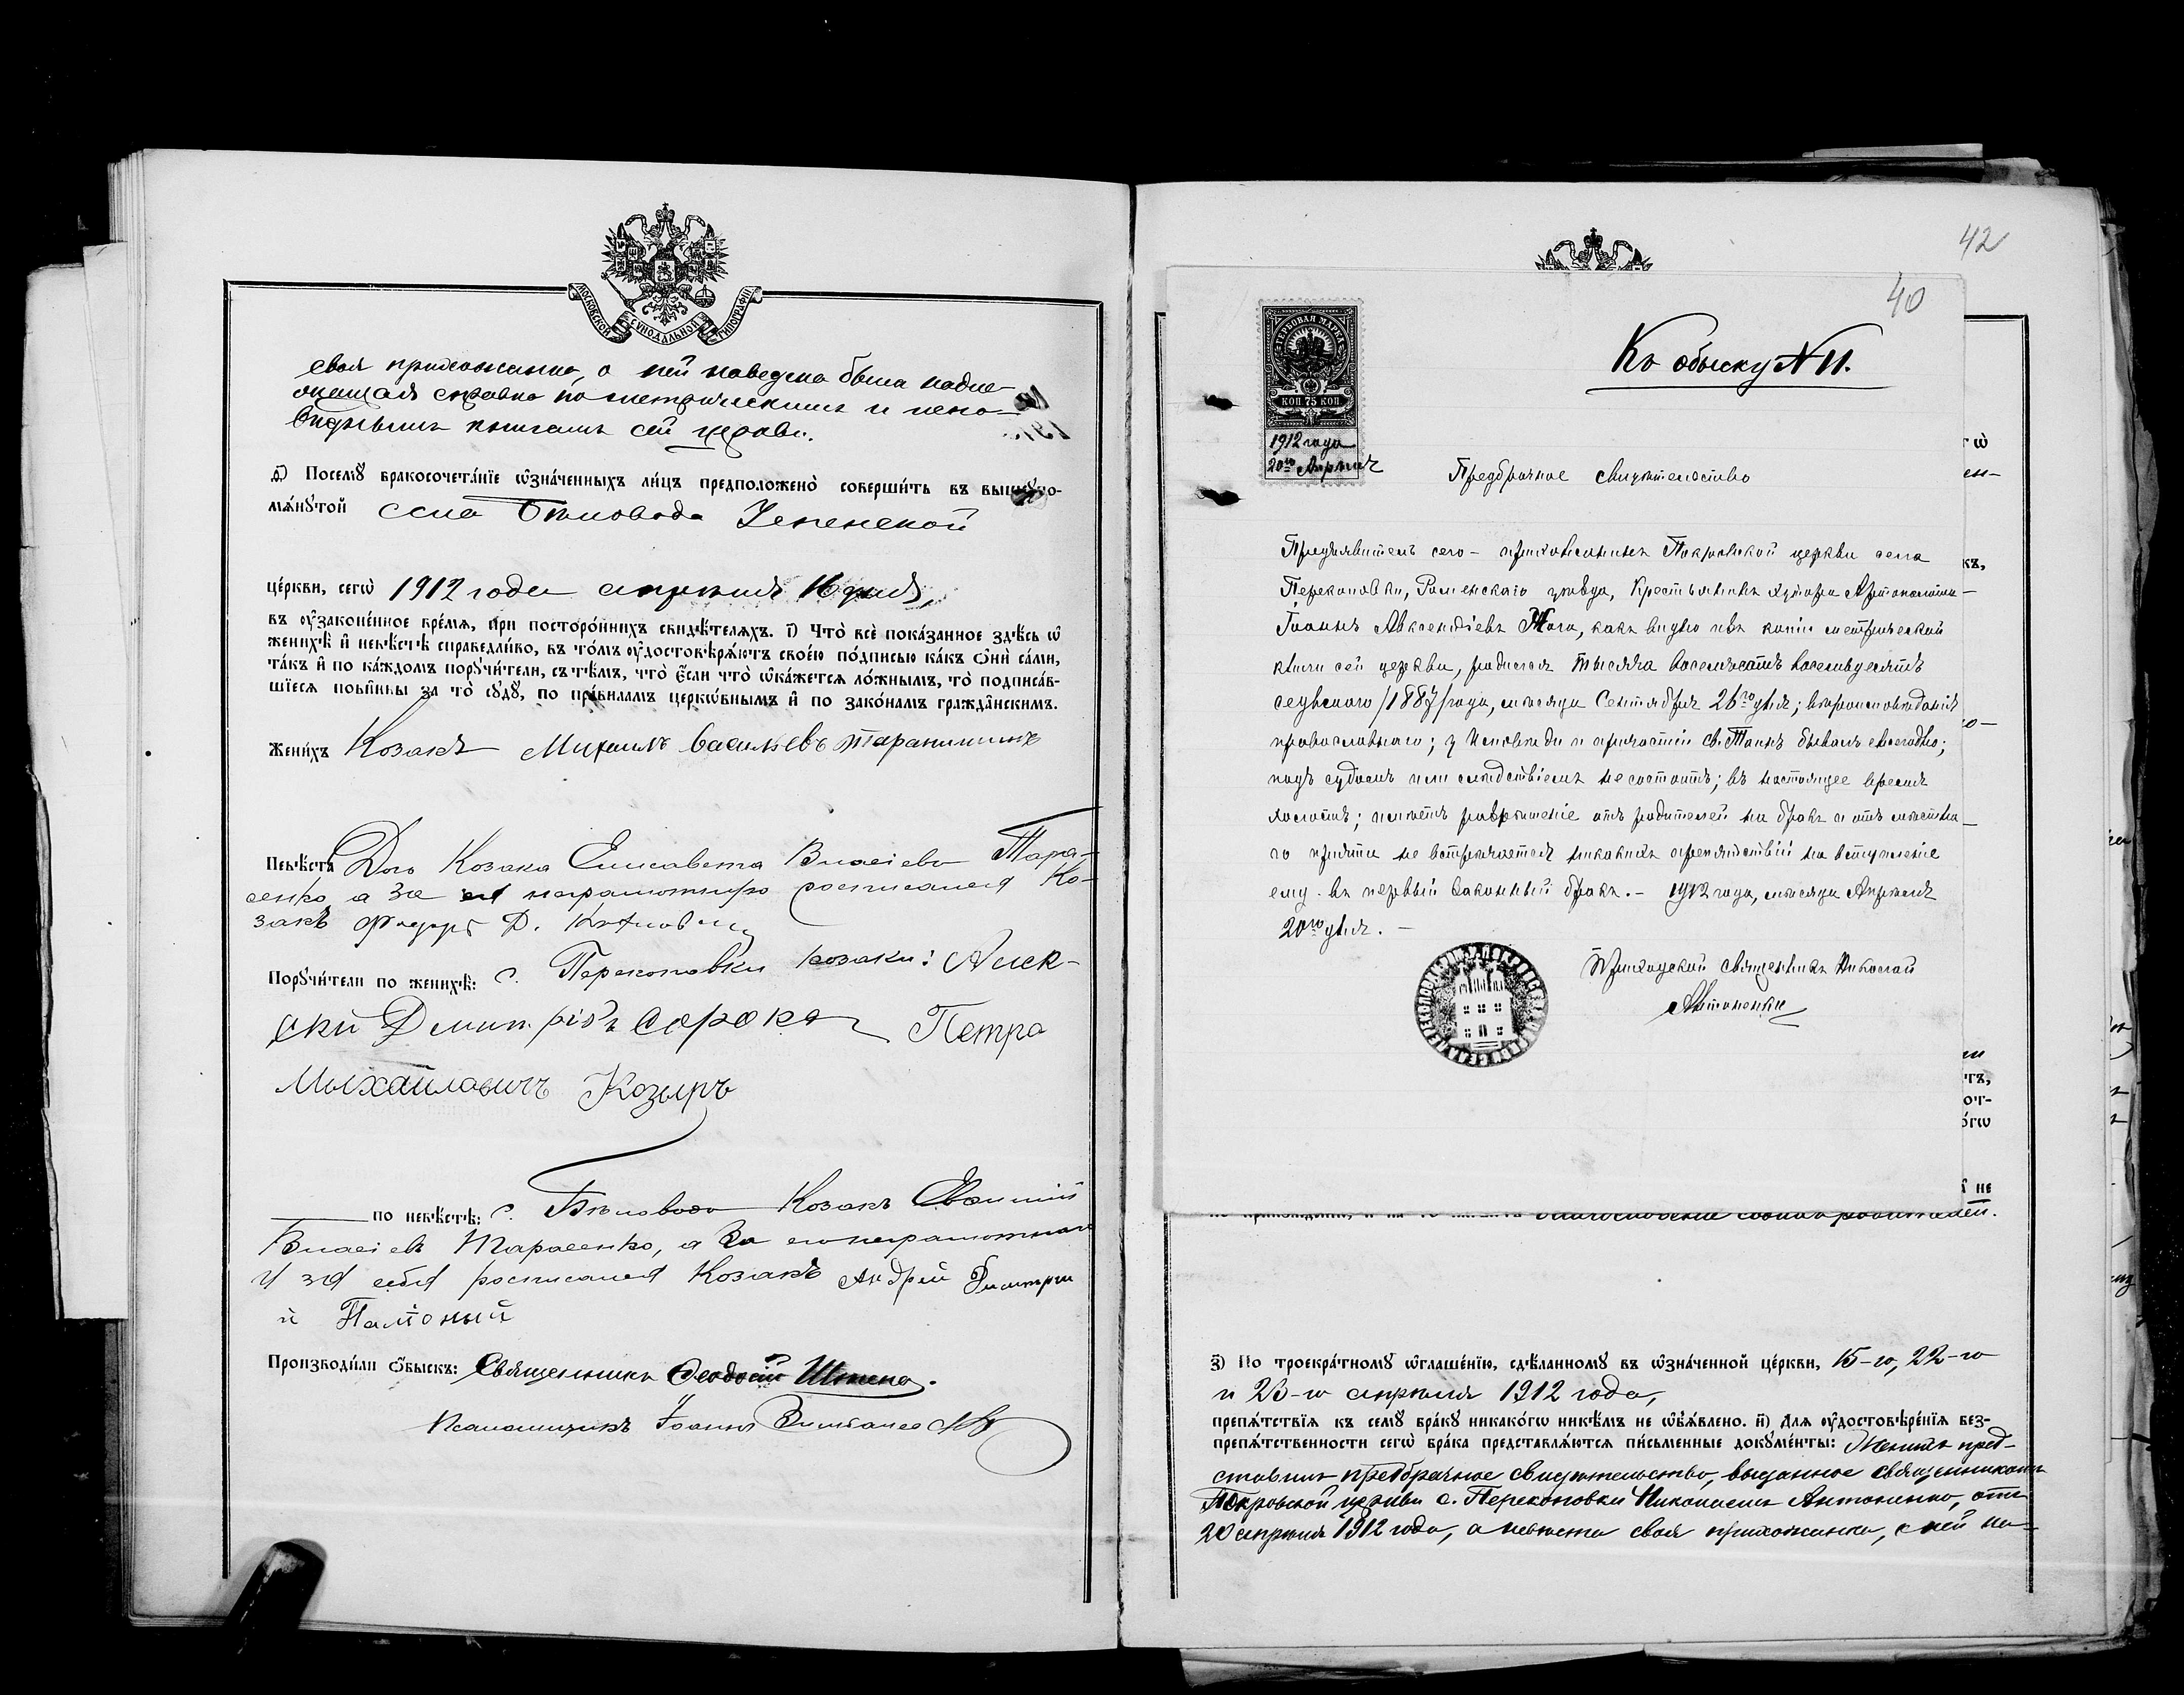 МОСКОВСКОЙ СУНОДАЛЬНОЙ ТИПОГРАФІИ
своя прихожанка, о ней наведена была надле-
жащая справка по метрическимъ и испо-
вѣднымъ книгамъ сей церкви.
Посемꙋ̀ бракосочета́нїе ѡ҆зна́ченныхъ ли́цъ предположено̀ соверши́ть въ вышеꙋпо-
мѧ́нꙋтой села Бѣловода Успенской
це́ркви, сегѡ̀ 1912 года апрѣля 16 дня,
въ ᲂу҆зако́ненное вре́мѧ, при посторо́ннихъ свидѣ́телѧхъ. і҃) Что̀ всѐ пока́занное здѣ́сь ѡ҆
женихѣ̀ и҆ невѣ́стѣ справедли́во, въ то́мъ ᲂу҆достовѣрѧ́ютъ свое́ю по́дписью ка́къ ѻ҆нѝ са́ми,
та́къ и҆ по ка́ждомъ порꙋчи́тели, съ тѣ́мъ, что̀ є҆́сли что̀ ѡ҆ка́жетсѧ ло́жнымъ, то̀ подписа́в-
шїесѧ пови́нны за то̀ сꙋдꙋ̀, по пра́виламъ церко́внымъ и҆ по зако́намъ гражда́нскимъ.
Жени́хъ Козакъ Михаилъ Васильевъ
Невѣ́ста Дочь Козака Елисавета Власіева Тара-
сенко а за ея неграмотную росписался Ко-
закъ Федоръ Д.
Порꙋчи́тели по женихѣ̀: с. Перекоповки козаки: Алек-
сѣй Дмитріевъ Сорока Петро
Михайловичъ Козыръ
по невѣ́стѣ: с. Бѣловода Козакъ
Власіевъ Тарасенко, а за его неграмотнаго
и за себя росписался Козакъ Андрей Димитри
й
Производи́ли ѻ҆́быскъ: Священникъ Ѳеодосій
Псаломщикъ Іоаннъ
42
40
ГЕРБОВАЯ МАРКА
КОП 75 КОП
1912 года
20го Апрѣля
Къ обыску № 11.
Предбрачное свидѣтельство
Предъявитель сего - прихожанинъ Покровской церкви села
Перекоповки, Роменскаго уѣзда, Крестьянинъ хутора
Іоаннъ Авксентіевъ Жога, какъ видно изъ копіи метрической
книги сей церкви, родился тысяча восемьсотъ восемьдесятъ
седьмого /1887/ года, мѣсяца Сентября 26го дня; вѣроисповѣданія
православнаго; у исповѣди и причастія св. Таинъ бывалъ ежегодно;
подъ судомъ или слѣдствіемъ не состоитъ; въ настоящее время
холостъ; имѣетъ разрѣшеніе отъ родителей на бракъ и отъ мѣстна-
го причта не встрѣчается никакихъ препятствій на вступленіе
ему въ первый законный бракъ. - 1912 года, мѣсяца Апрѣля
20го дня. -
Приходскій священникъ Николай
Антоненко
благословеніе своихъ родителей.
з҃) По троекра́тномꙋ ѡ҆глаше́нїю, сдѣ́ланномꙋ въ ѡ҆зна́ченной це́ркви, 15-го, 22-го
и 23-го апрѣля 1912 года,
препѧ́тствїѧ къ семꙋ̀ бра́кꙋ никако́гѡ никѣ́мъ не ѡ҆б̾ѧ́влено. и҃) Длѧ ᲂу҆достовѣре́нїѧ без-
препѧ́тственности сегѡ̀ бра́ка представлѧ́ютсѧ пи́сьменные докꙋме́нты: Женихъ пред-
ставилъ предбрачное свидѣтельство, выданное священникомъ
Покровской церкви с. Перекоповки Николаемъ Антоненко, отъ
20 апрѣля 1912 года, а невѣста своя прихожанка, о ней на-